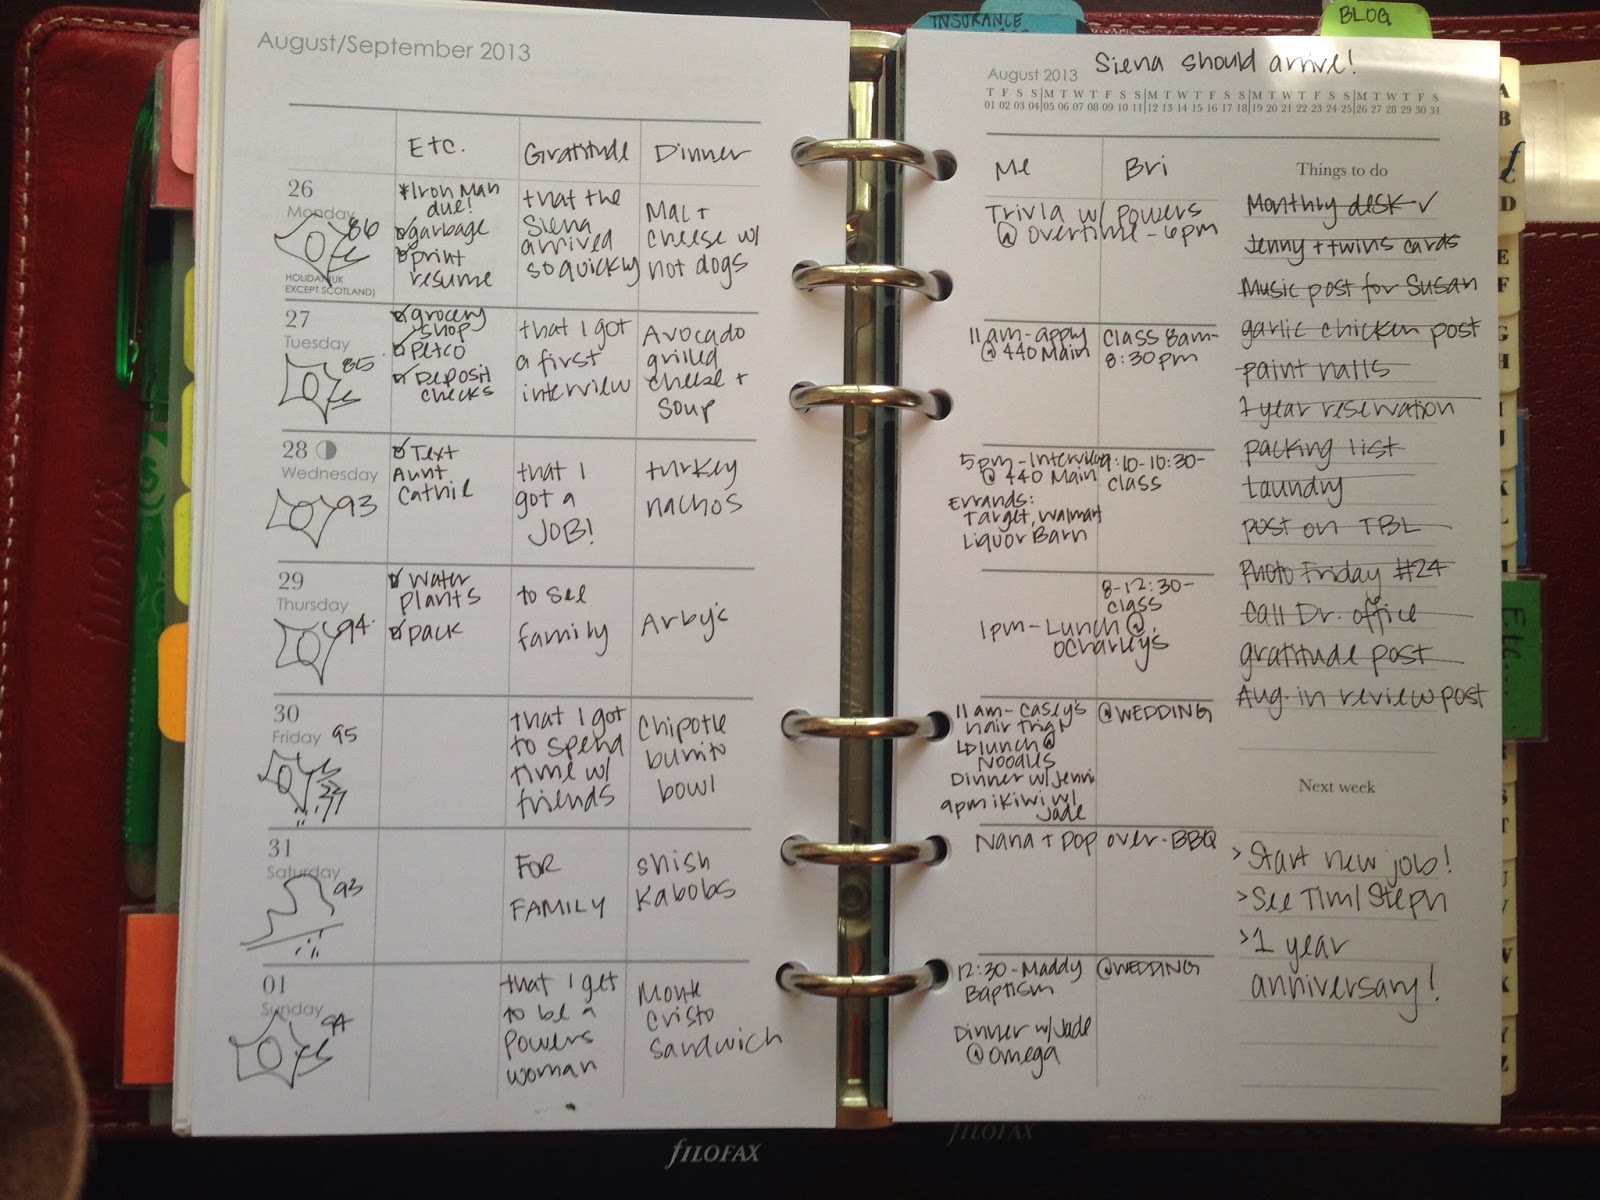 August/September 2013
Etc.
Gratitude
Dinner
26
Monday
86
HOLIDAY (UK
EXCEPT SCOTLAND)
*Iron Man
due!
garbage
print
resume
that the
Siena
arrived
so quickly
Mac +
cheese w/
hot dogs
27
Tuesday
85
grocery
shop
Petco
Deposit
checks
that I got
a first
interview
Avocado
grilled
cheese +
soup
28
Wednesday
93
Text
Aunt
Cathie
that I
got a
JOB!
turkey
nachos
29
Thursday
94
Water
plants
pack
to see
family
Arby's
30
Friday 95
that I got
to spend
time w/
friends
Chipotle
burrito
bowl
31
Saturday
93
FOR
FAMILY
Shish
Kabobs
01
Sunday
94
that I get
to be a
Powers
woman
Monte
Cristo
Sandwich
fILOFAX
INSURANCE
BLOG
Siena should arrive!
August 2013
T F S S M T W T F S S M T W T F S S M T W T F S S M T W T F S
01 02 03 04 05 06 07 08 09 10 11 12 13 14 15 16 17 18 19 20 21 22 23 24 25 26 27 28 29 30 31
Me
Bri
Trivia w/ Powers
@ Overtime - 6pm
11am - apply
@ 440 Main
Class 8am-
8:30pm
5pm - Interview
@ 440 Main
Errands:
Target, Walmart
Liquor Barn
9:10-10:30-
class
8-12:30-
class
1pm - Lunch @
OCharley's
11am - Casey's
hair trial
lunch @
Noodles
Dinner w/ Jenni
9pm ikiwi w/
Jade
@WEDDING
Nana + Pop over - BBQ
12:30 - Maddy
Baptism
Dinner w/ Jade
@Omega
@WEDDING
Things to do
Monthly desk ✓
Jenny + twins cards
Music post for Susan
garlic chicken post
paint nails
1 year reservation
packing list
laundry
post on TBL
Photo Friday #24
call Dr. office
gratitude post
Aug. in review post
Next week
> Start new job!
> See Tim/Steph
> 1 year
anniversary!
A
B
C
D
E
F
G
H
I
J
K
L
Etc.
S
T
U
V
W
X
Y
Z
fILOFAX